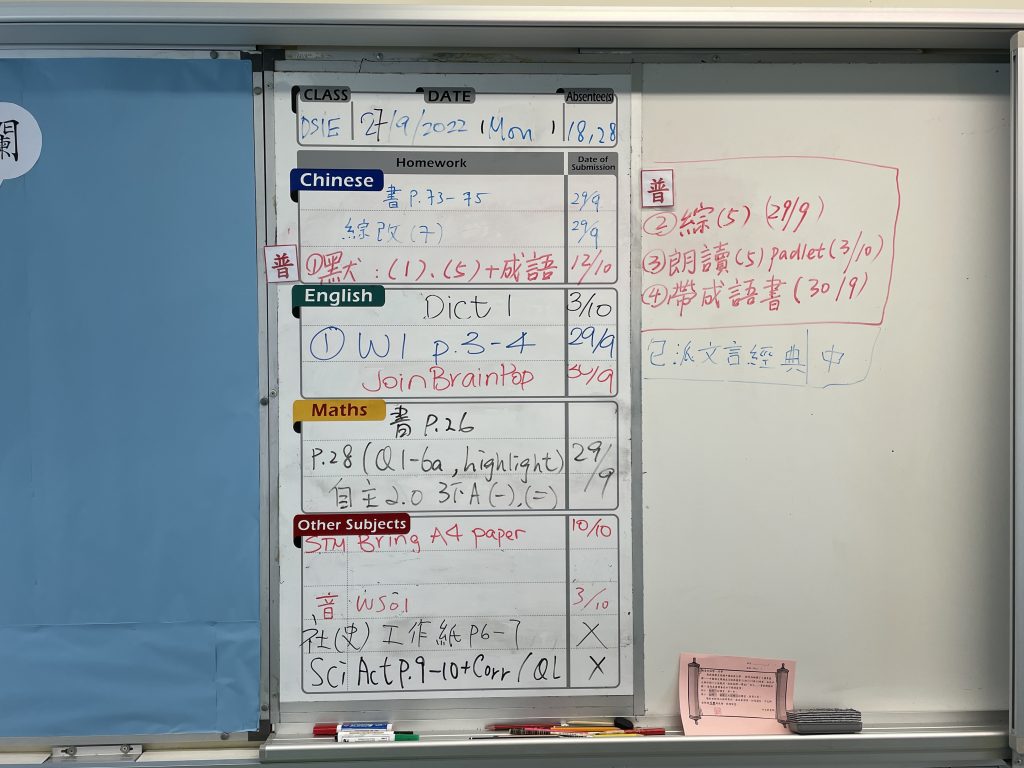 CLASS DATE Absentee(s)
27/9/2022 (Mon) 18,28
Homework Date of Submission
Chinese
書 P.73-75 29/9
綜改(7) 29/9
普 ①默:(1)、(5)+成語 12/10
English
Dict 1 3/10
① W1 p.3-4 29/9
Join BrainPop 30/9
Maths
書 P.26
P.28 (Q1-6a, highlight) 29/9
自主2.0
Other Subjects
STM Bring A4 paper 10/10
音 WS01 3/10
社(史)工作紙 P6-7 X
Sci Act P.9-10+Corr/QL X
普
②綜(5) (29/9)
③朗讀(5) padlet (3/10)
④帶成語書 (30/9)
已派文言經典 中